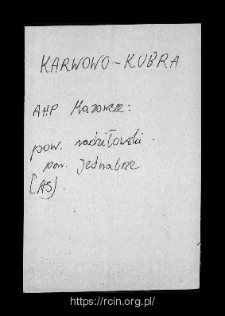 KARWOWO-KUBRA
AHP Mazowsze:
pow. radziłowski
par. Jedwabne
(AS).
https://rcin.org.pl/